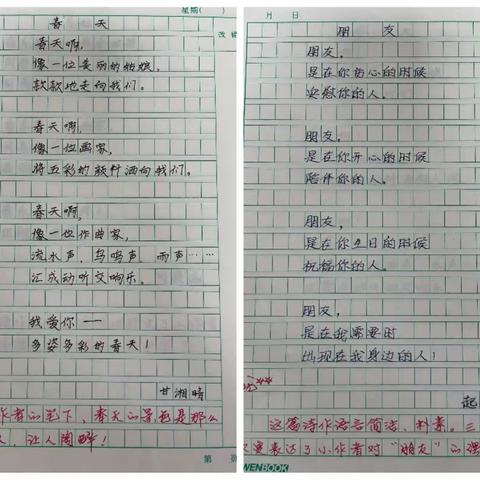 星期(
改 错
春 天
春天啊，
像一位美丽的姑娘，
款款地走向我们。
春天啊，
像一位画家，
将五彩的颜料洒向我们。
春天啊，
像一位作曲家，
流水声、鸟鸣声、雨声……
汇成动听交响乐。
我爱你——
多姿多彩的春天！
甘湘晴
作者的笔下，春天的景色是那么
人，让人陶醉！
第 页
月 日
朋 友
朋友，
是在你伤心的时候
安慰你的人。
朋友，
是在你开心的时候
陪伴你的人。
朋友，
是在你生日的时候
祝福你的人。
朋友，
是在我需要时
出现在我身边的人！
起
这篇诗作语言简洁、朴素。三
表达了小作者对“朋友”的理
WENBOOK